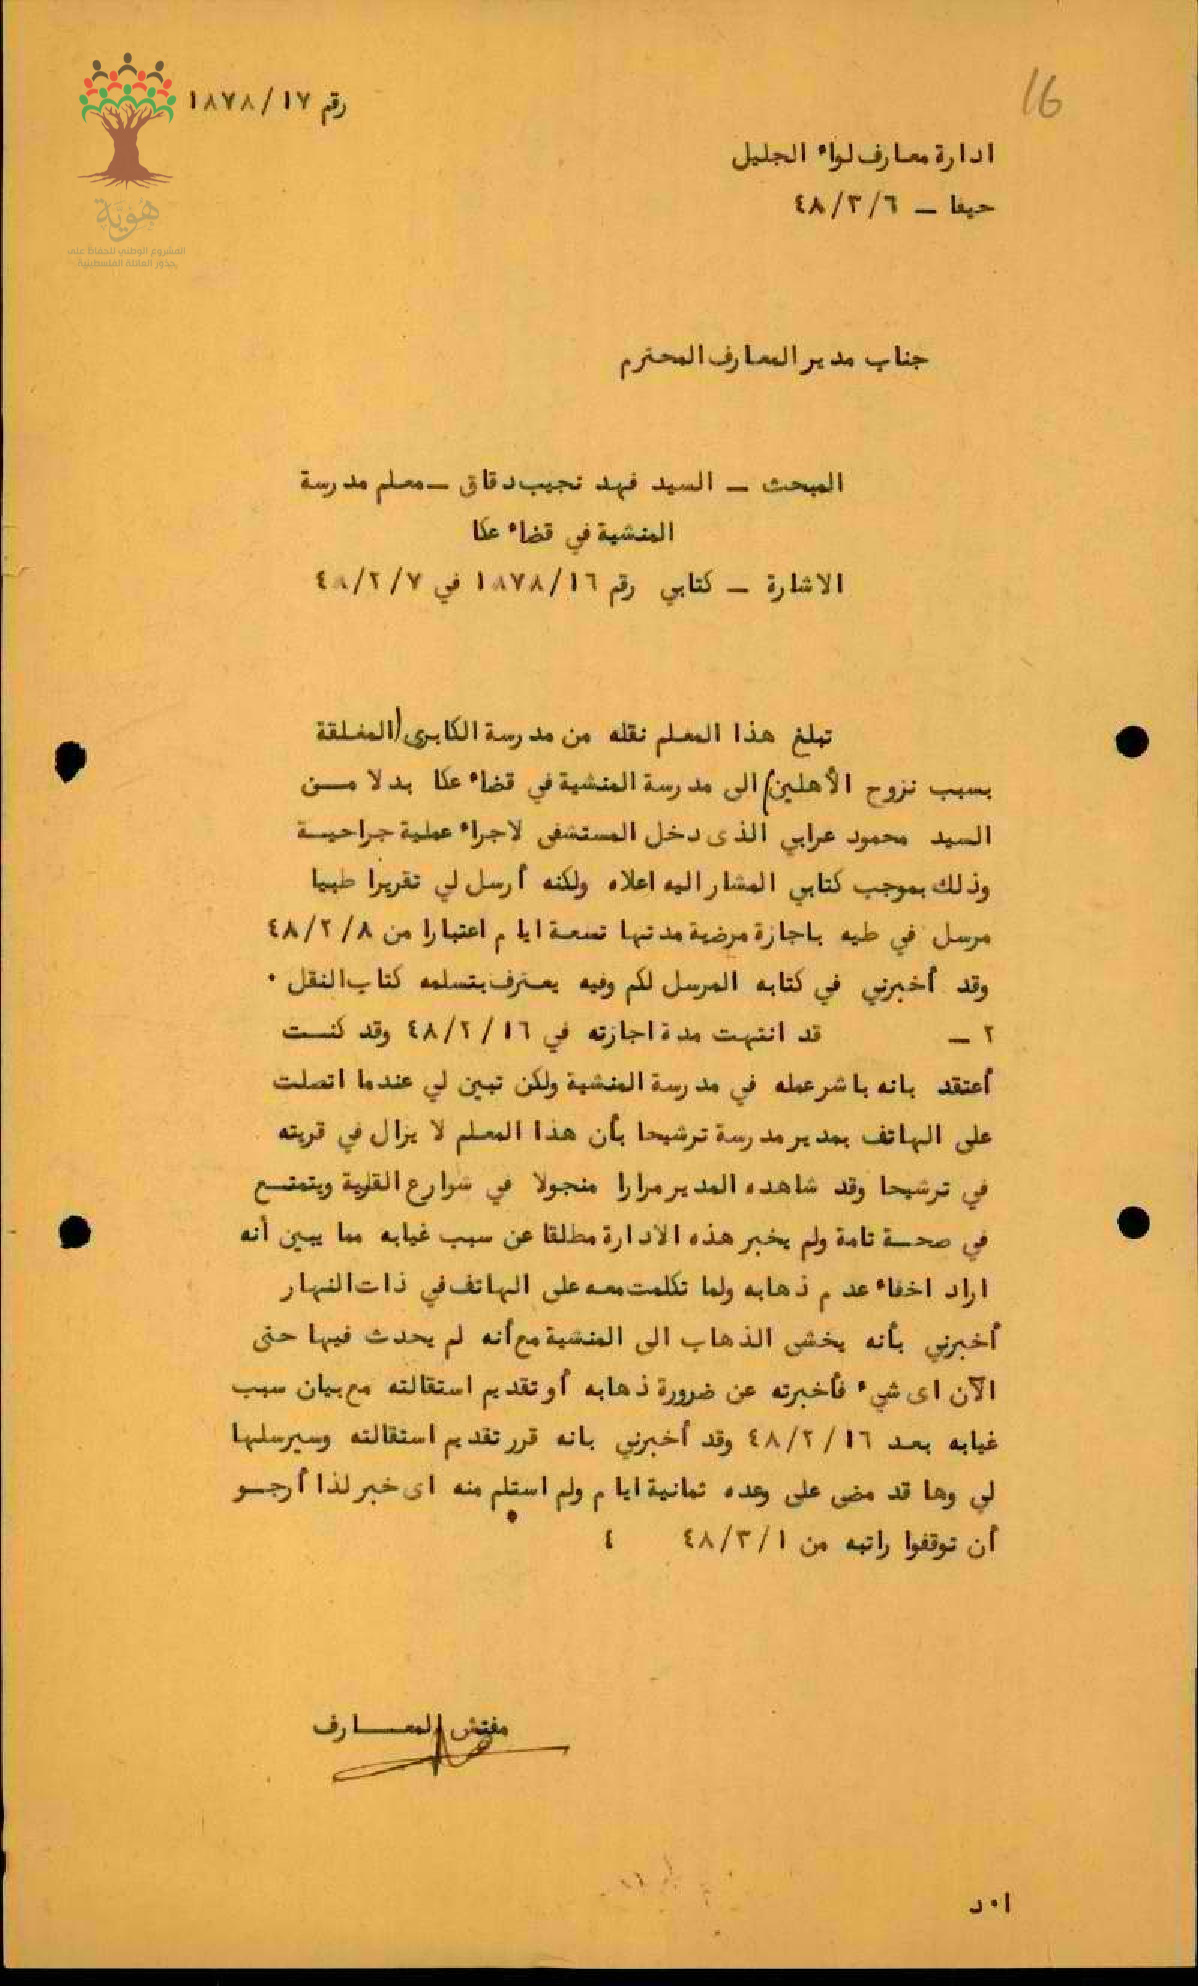 16
رقم ١٨٧٨/١٧
هُوِيَّة
المشروع الوطني للحفاظ على
جذور العائلة الفلسطينية
ادارة معارف لواء الجليل
حيفا – ٤٨/٣/٦
جناب مدير المعارف المحترم
المبحث – السيد فهد نجيب دقاق – معلم مدرسة
المنشية في قضاء عكا
الاشارة – كتابي رقم ١٨٧٨/١٦ في ٤٨/٢/٧
تبلغ هذا المعلم نقله من مدرسة الكابرى (المغلقة
بسبب نزوح الأهلين) الى مدرسة المنشية في قضاء عكا بدلا مــن
السيد محمود عرابي الذى دخل المستشفى لاجراء عملية جراحيــة
وذلك بموجب كتابي المشار اليه اعلاه ولكنه أرسل لي تقريرا طبيا
مرسل في طيه باجازة مرضية مدتها تسعة ايام اعتبارا من ٤٨/٢/٨
وقد أخبرني في كتابه المرسل لكم وفيه يعترف بتسلمه كتاب النقل ٠
٢ – قد انتهت مدة اجازته في ٤٨/٢/١٦ وقد كنــت
أعتقد بانه باشر عمله في مدرسة المنشية ولكن تبين لي عندما اتصلت
على الهاتف بمدير مدرسة ترشيحا بأن هذا المعلم لا يزال في قريته
في ترشيحا وقد شاهده المدير مرارا متجولا في شوارع القرية ويتمتــع
في صحــة تامة ولم يخبر هذه الادارة مطلقا عن سبب غيابه مما يبين أنه
اراد اخفاء عدم ذهابه ولما تكلمت معه على الهاتف في ذات النهار
أخبرني بأنه يخشى الذهاب الى المنشية مع أنه لم يحدث فيها حتى
الآن اى شيء فأخبرته عن ضرورة ذهابه أو تقديم استقالته مع بيان سبب
غيابه بعد ٤٨/٢/١٦ وقد أخبرني بانه قرر تقديم استقالته وسيرسلها
لي وها قد مضى على وعده ثمانية ايام ولم استلم منه اى خبر لذا أرجــو
أن توقفوا راتبه من ٤٨/٣/١ ٤
مفتش المعــــارف
ا٠د